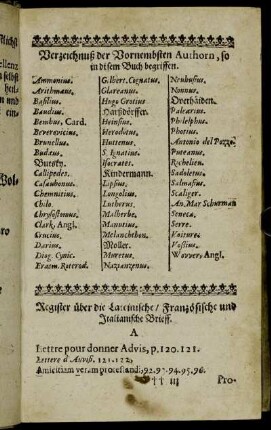 Verzeichnuß der Vornembsten Authorn, so
in disem Buch begriffen.
Ammonius.
Arithmæus.
Basilius.
Baudius.
Bembus, Card.
Brunellus.
Budæus.
Butsky.
Callipedes.
Casaubonus.
Chemnitius.
Chilo.
Chrysostmus.
Clark, Angl.
Crucius.
Darius.
Diog. Cynic.
Erasm. Roterod.
Gilbert. Cognatus.
Glareanus.
Hugo Grotius
Harßdörffer.
Heinsius.
Herodotus.
Huttenus.
S. Ignatius.
Isocrates.
Kindermann.
Lipsius.
Longolius.
Lutherus.
Malherbe.
Manutius.
Melanchthon.
Moller.
Muretus.
Nazianzenus.
Neubusius.
Nonnus.
Overhäiden.
Palearius.
Philelphus.
Photius.
Antonio del Pozzo.
Puteanus.
Richelieu.
Sadoletus.
Salmasius.
Scaliger.
An. Mar Schurman
Seneca.
Serre.
Voiture.
Vossius.
Wavver, Angl.
Register über die Lateinische / Französische und
Italianische Brieff.
A
Lettre pour donner Advis, p. 120. 121.
Lettere d'Avviso. 121. 122.
Amicitiam veram profestand: 92. 93. 94. 95. 96.
Pro-